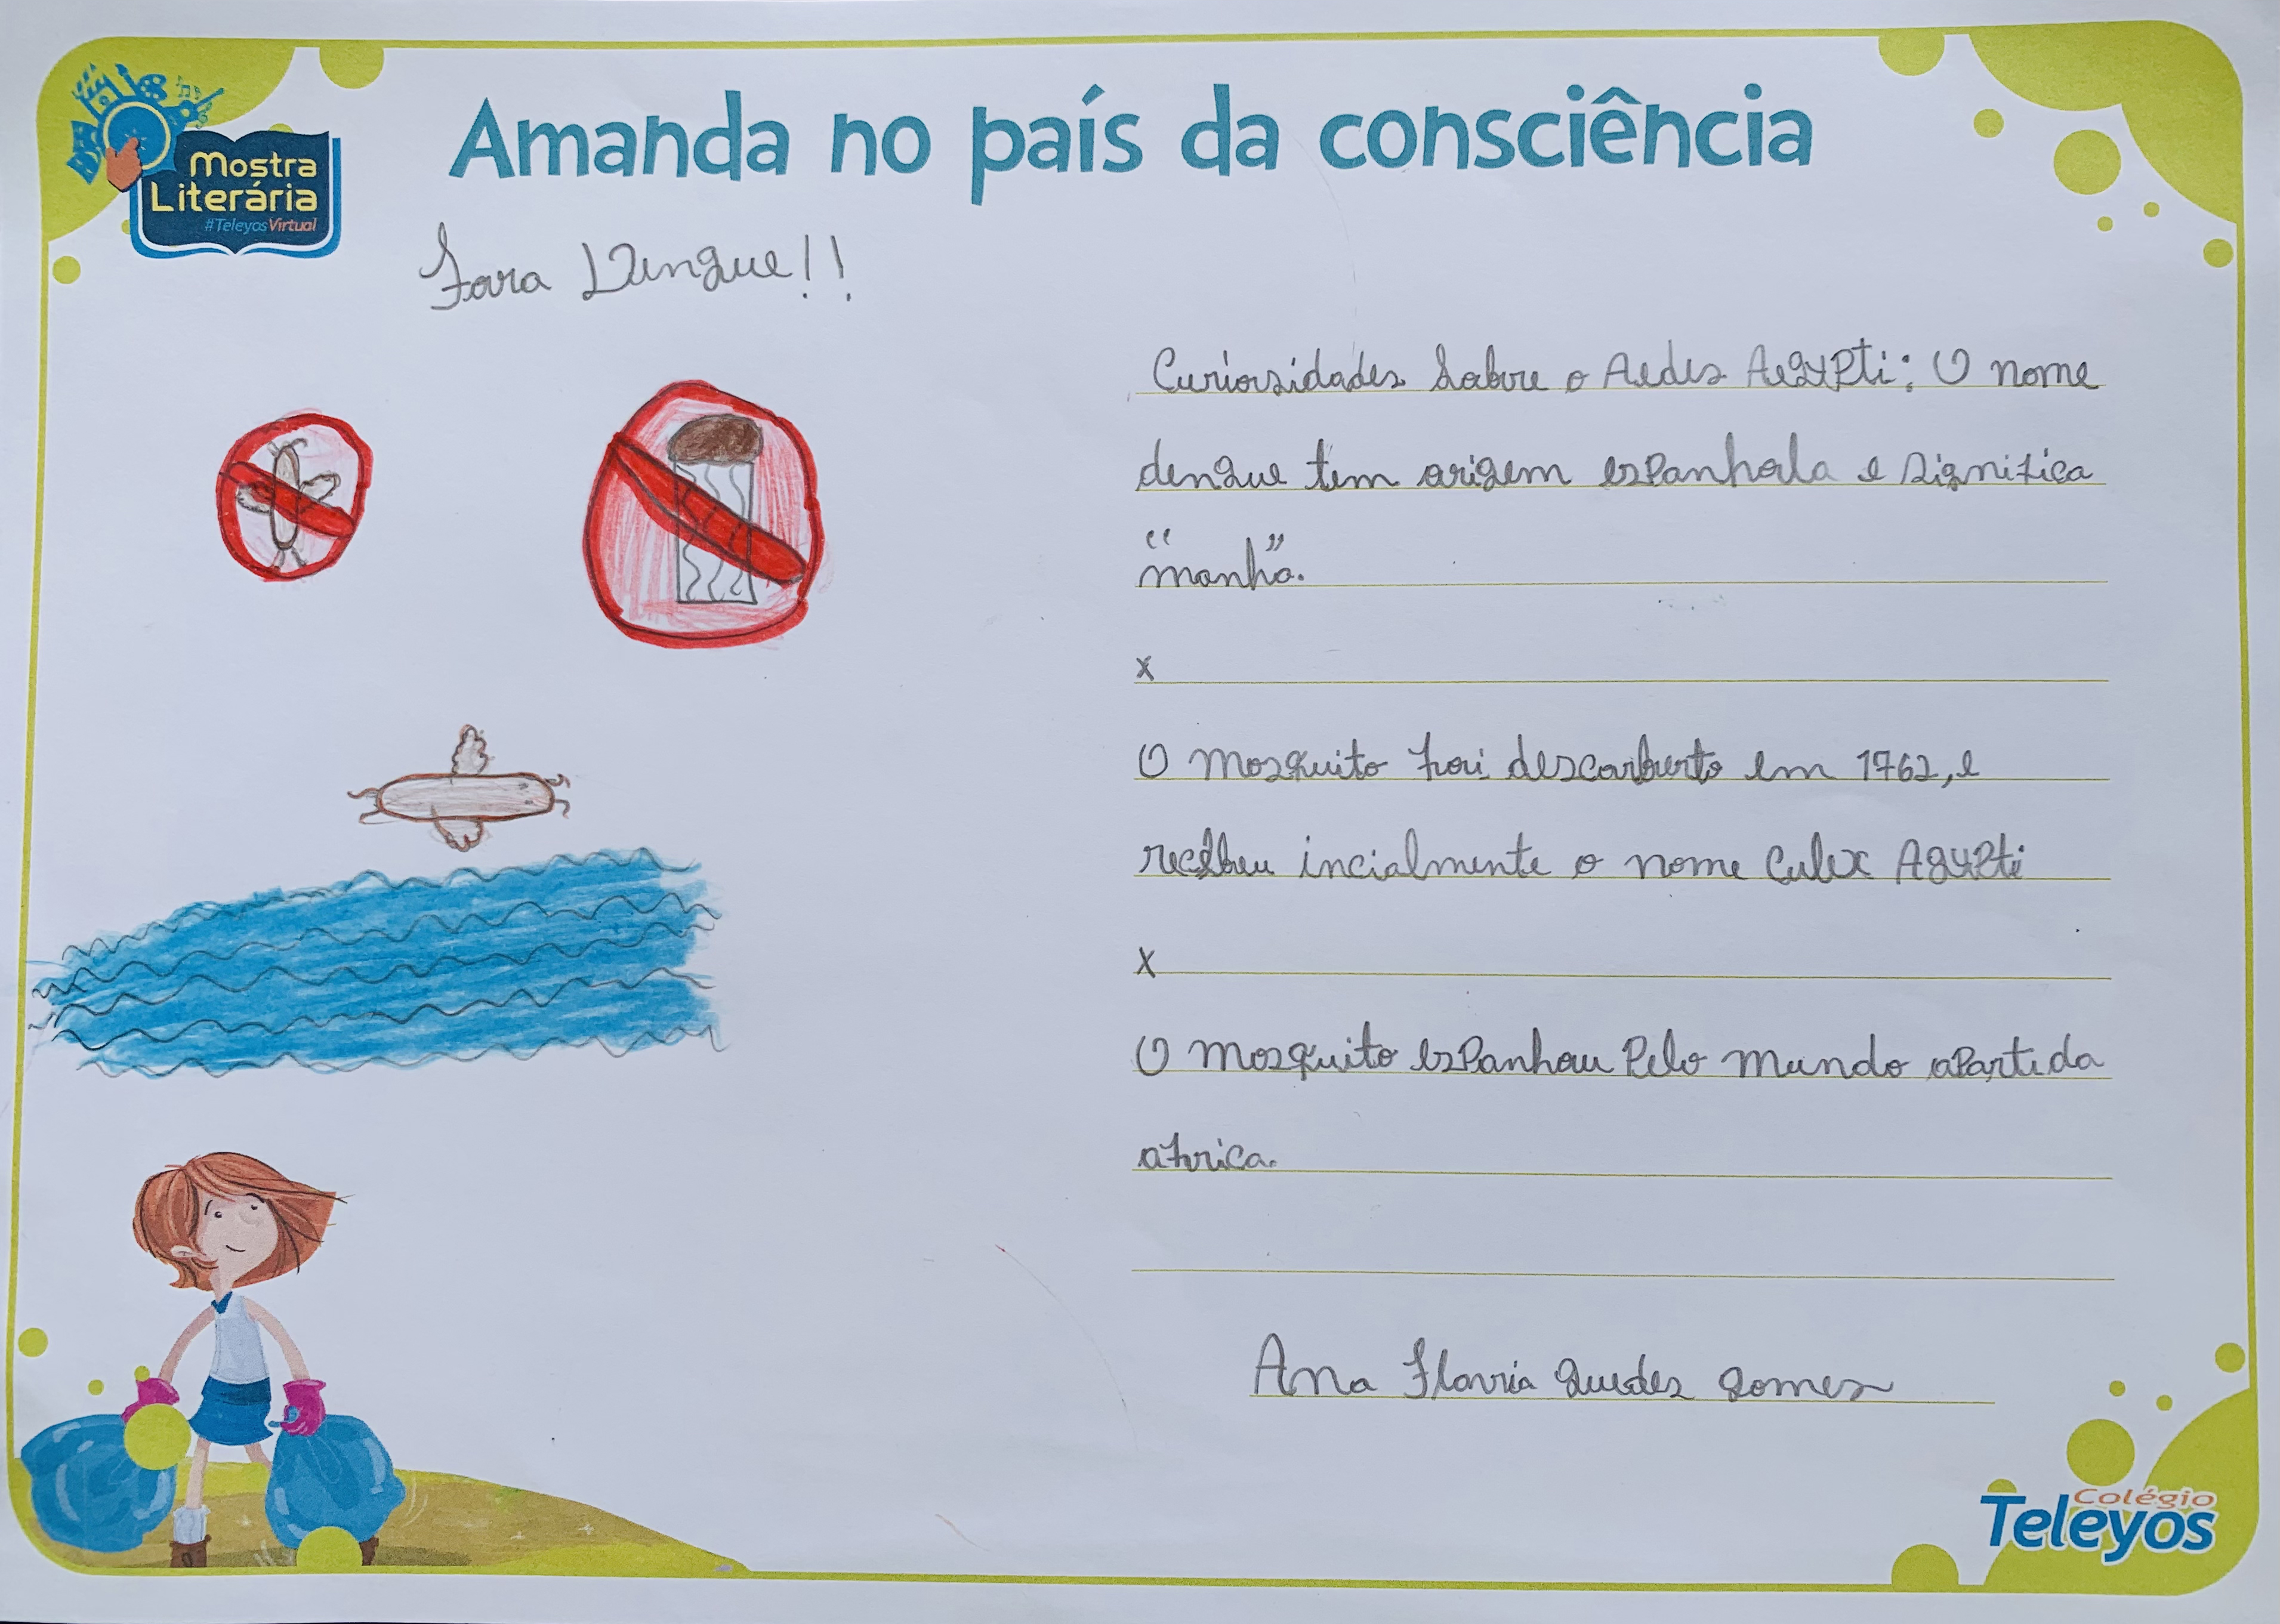 Amanda no país da consciência
Mostra
Literária
#TeleyosVirtual
Fora Dengue!!
Curiosidades Sobre o Aedes Aegypti: O nome
dengue tem origem espanhola e significa
"manha."
x
O mosquito foi descorberto em 1762, e
recebeu incialmente o nome Culex Agypti
x
O mosquito espanhou Pelo mundo apartida
africa.
Ana Flavia guedes gomes
Colégio
Teleyos